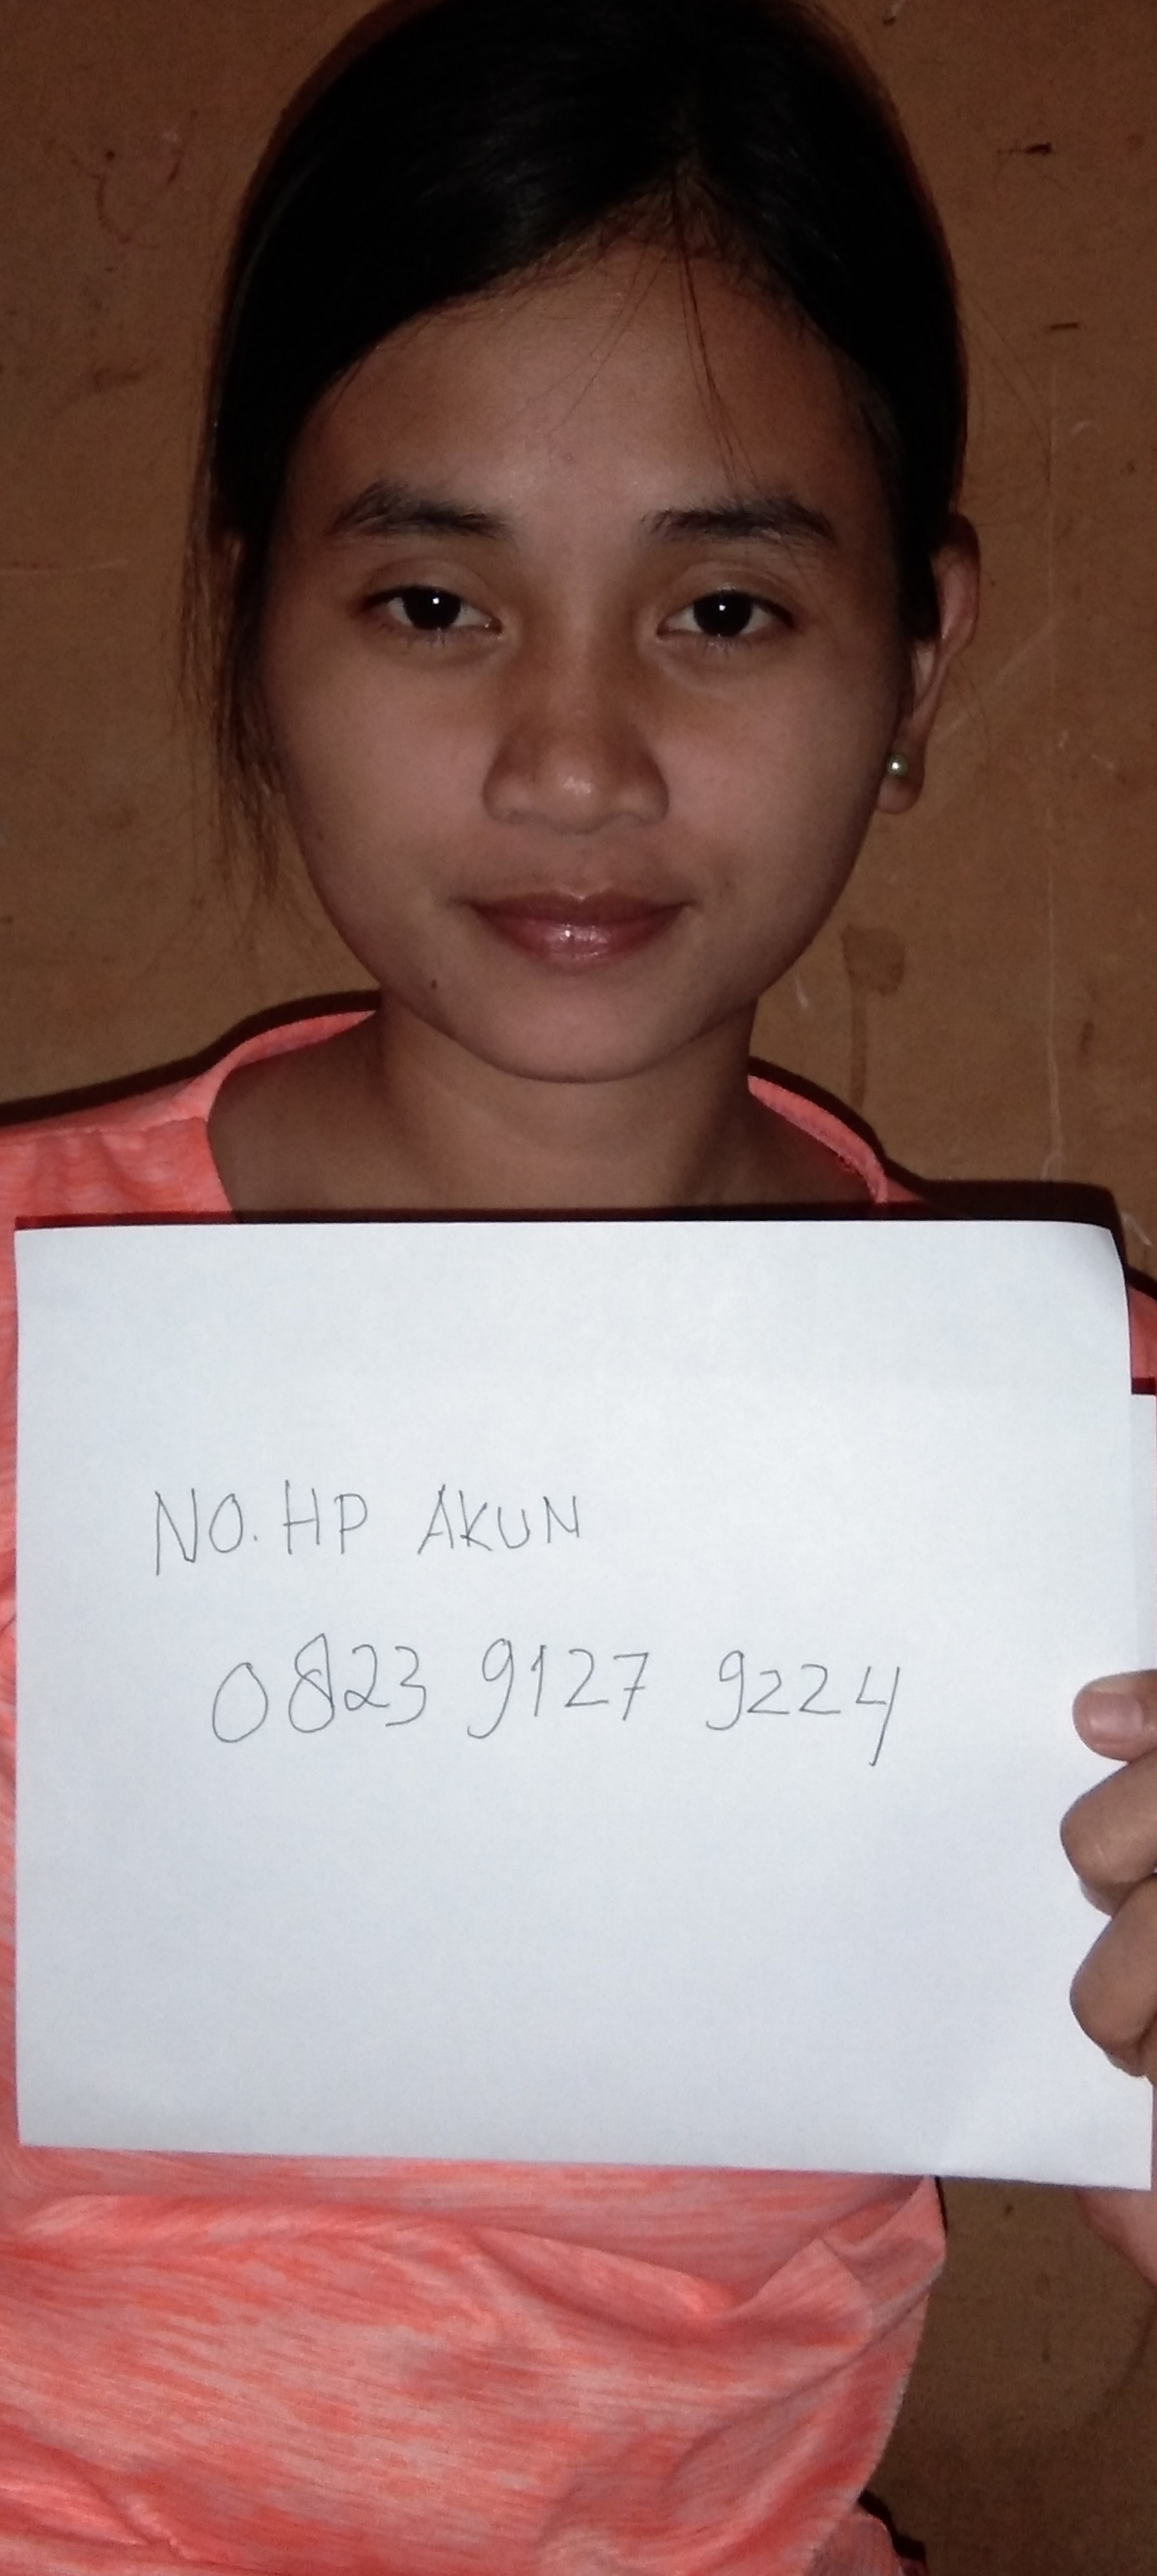 NO. HP AKUN
0823 9127 9224